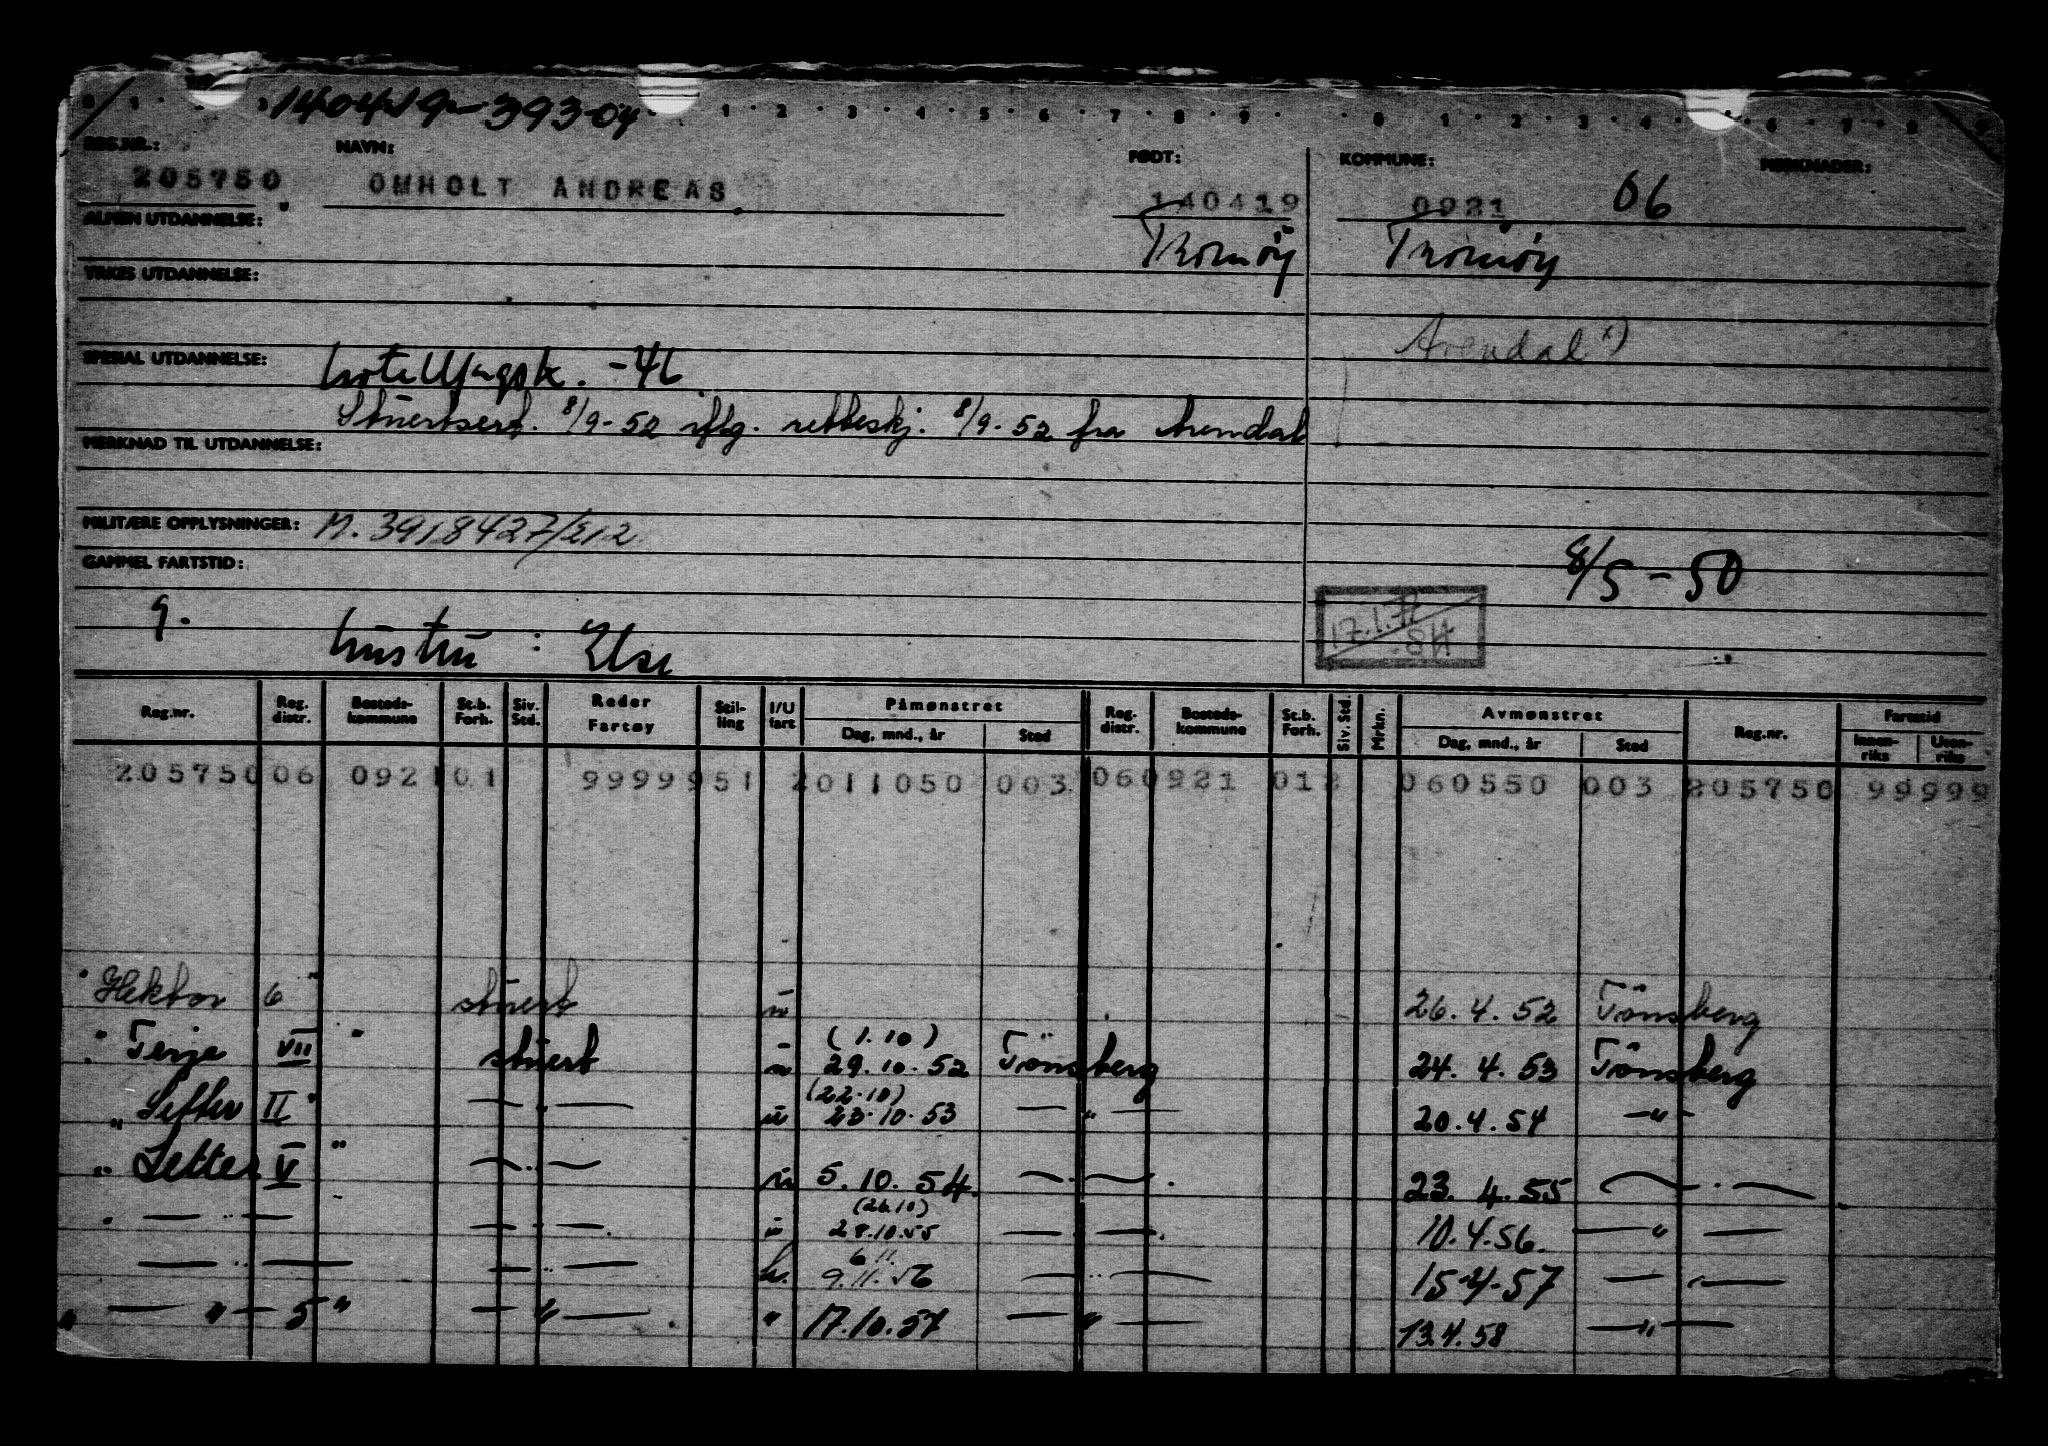 140419-393-04
REG.NR.: NAVN: FØDT: KOMMUNE: MERKNADER:
205750 OMHOLT ANDREAS 140419 0921 06
ALMEN UTDANNELSE: Tromöy Tromöy
YRKES UTDANNELSE:
Arendal x)
SPESIAL UTDANNELSE: hotellfagsk. -46
Stuertsert. 8/9-52 iflg. retteskj. 8/9-52 fra Arendal
MERKNAD TIL UTDANNELSE:
MILITÆRE OPPLYSNINGER: M. 3918427/E12
GAMMEL FARTSTID: 8/5-50
g. hustru: Else
17.1.71
Reg.nr. Reg. distr. Bosteds-kommune St.b. Forh. Siv. Std. Reder Fartøy Stil-ling I/U fart Påmønstret Dag, mnd., år Sted Reg. distr. Bosteds-kommune St.b. Forh. Siv. Std. Mrkn. Avmønstret Dag, mnd., år Sted Reg.nr. Fartstid Innen-riks Uten-riks
205750 06 0921 01 99999 51 2 011050 003 06 0921 012 060550 003 205750 99999
" Hektor 6 " stuert u 26.4.52 Tönsberg
(1.10)
" Terje VII " stuert u 29.10.52 Tönsberg 24.4.53 Tönsberg
(22.10)
" Setter II " — " — u 23.10.53 — " — 20.4.54 — " —
" Setter V " — " — u 5.10.54. — " — 23.4.55 — " —
(26.10)
" — " — — " — u 28.10.55 — " — 10.4.56. — " —
6 11.
— " — — " — u. 9.11.56 — " — 15.4.57 — " —
" — " — 5 " — " — " 17.10.57 — " — 13.4.58 — " —